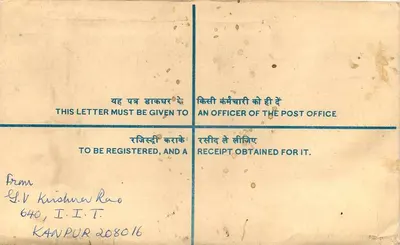 यह पत्र डाकघर के किसी कर्मचारी को ही दें
THIS LETTER MUST BE GIVEN TO AN OFFICER OF THE POST OFFICE
रजिस्ट्री कराके रसीद ले लीजिए
TO BE REGISTERED, AND A RECEIPT OBTAINED FOR IT.
From
G.V Krishna Rao
640, I.I.T.
KANPUR 208016